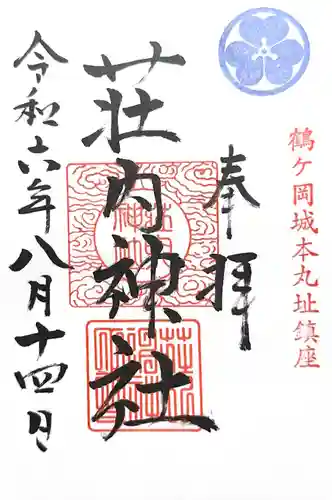 鶴ケ岡城本丸址鎮座
奉拝
荘内神社
令和六年八月十四日